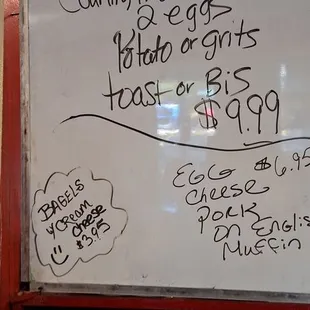 2 eggs
Potato or grits
toast or Bis
$9.99
EGG $6.95
cheese
PORK
on English
Muffin
BAGELS
w/ CREAM
cheese
$3.95